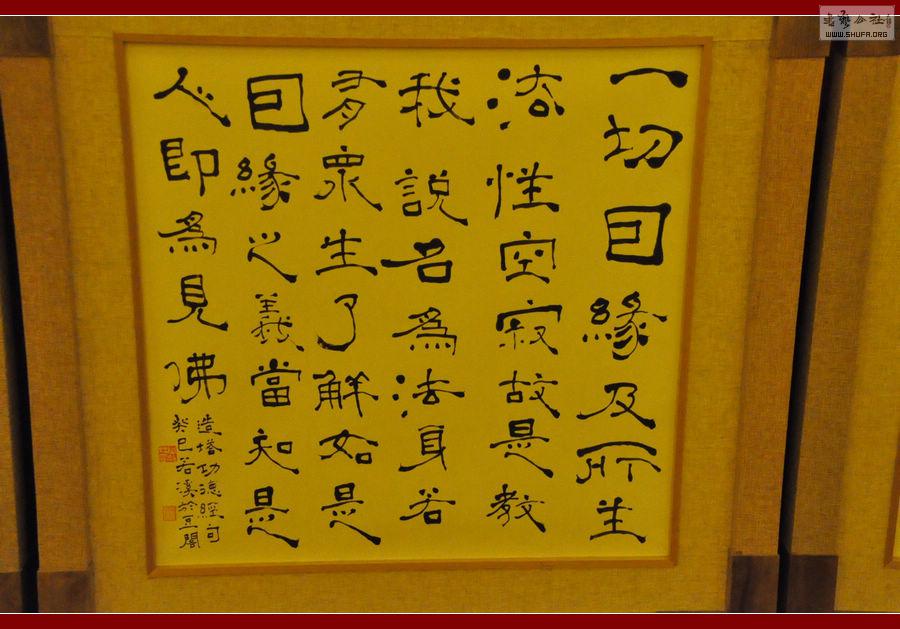 一切囙緣及所生
法性空寂故是教
我說名為法身若
有眾生了解如是
囙緣之義當知是
人即為見佛
造塔功德經句
癸巳若溪於閣
书艺公社
WWW.SHUFA.ORG